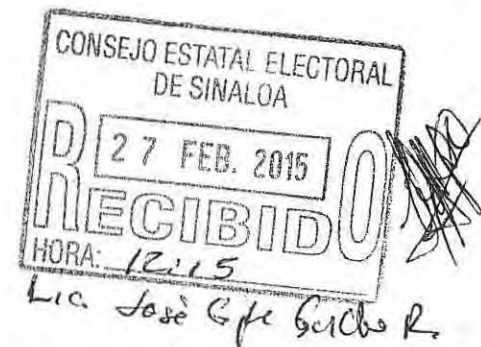 CONSEJO ESTATAL ELECTORAL
DE SINALOA
27 FEB. 2015
RECIBIDO
HORA: 12:15
Lic. José R.